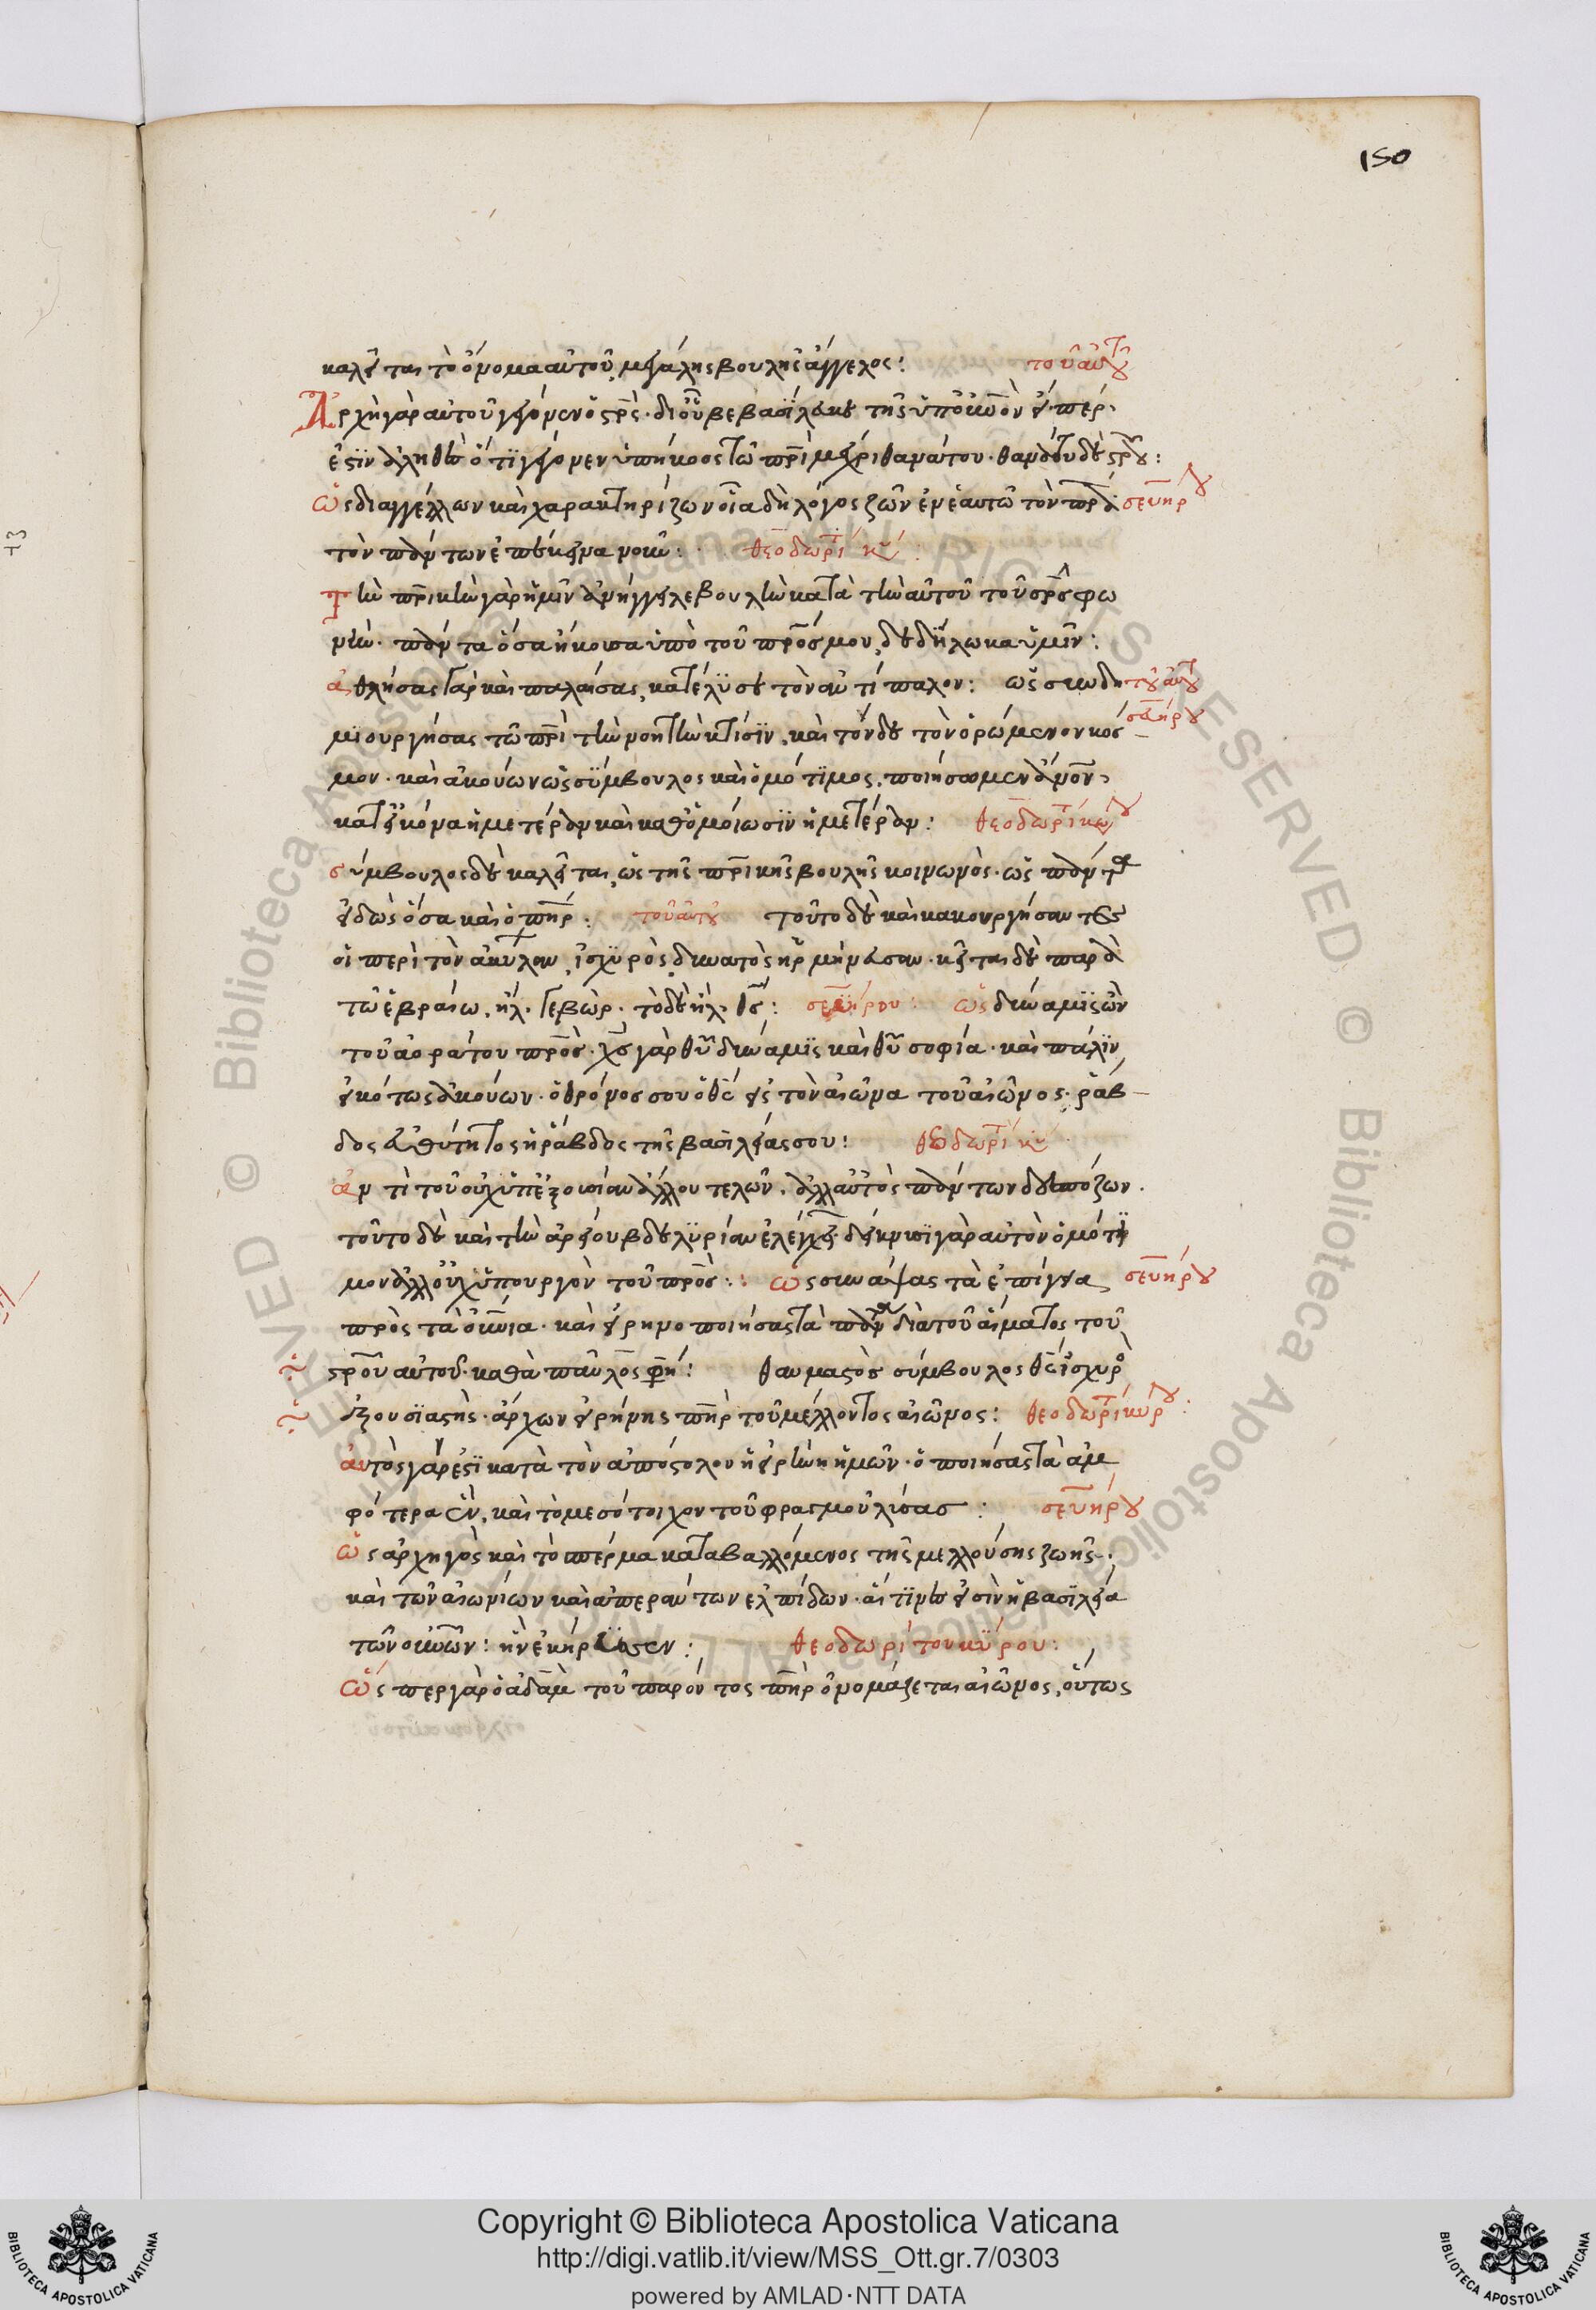 150
καλεῖται τὸ ὄνομα αὐτοῦ, μεγάλης βουλῆς ἄγγελος: τοῦ αὐτοῦ
Ἀρχὴ γὰρ αὐτοῦ γέγονεν ὁ σρς· διοῦ βεβασίλευκε τῆς ὑπ οὐνὸν εἴπερ
ἐστὶν ἀληθὲς ὅτι γέγονεν ὑπήκοος τῶ πρὶ μέχρι θανάτου· θανάτου δὲ σρου:
ὡς διαγγέλλων καὶ χαρακτηρίζων οἷα δὴ λόγος ζῶν ἐν ἑαυτῶ τὸν πρα σευήρου
τὸν πάντων ἐπέκεινα νοῦν: θεοδωρίτ κυ:
Τὴν πρικὴν γὰρ ἡμῖν ἀνήγγειλε βουλὴν κατὰ τὴν αὐτοῦ τοῦ σρς φω
νήν· πάντα ὅσα ἤκουσα ὑπὸ τοῦ πρός μου, δεδήλωκα ὑμῖν:
ἀθλήσας γὰρ καὶ παλαίσας, κατέλυσε τὸν ἀντίπαλον: ὡς συνδη τοῦ αὐτοῦ
σευήρου
μιουργήσας τῶ πρὶ τὴν νοητὴν κτίσιν, καὶ τόνδε τὸν ὁρώμενον κόσ
μον· καὶ ἀκούων ὡς σύμβουλος καὶ ὁμότιμος, ποιήσωμεν ἄνον
κατ εἰκόνα ἡμετέραν καὶ καθ ὁμοίωσιν ἡμετέραν: θεοδωρίτ κύρου
σύμβουλος δὲ καλεῖται, ὡς τῆς πρικῆς βουλῆς κοινωνός· ὡς πάντα
εἰδὼς ὅσα καὶ ὁ πηρ: τοῦ αὐτοῦ τοῦτο δὲ καὶ κακουργήσαντες
οἱ περὶ τὸν ἀκύλαν, ἰσχυρὸς δυνατὸς ἡρμήνευσαν· κεῖται δὲ παρὰ
τῶ ἑβραίω, ἠλ· γεβὼρ· τὸ δὲ ἠλ θς: σευήρου: ὡς δύναμις ὢν
τοῦ ἀοράτου πρός· χς γὰρ θυ δύναμις καὶ θυ σοφία· καὶ πάλιν
εἰκότως ἀκούων· ὁ θρόνος σου ὁ θς εἰς τὸν αἰῶνα τοῦ αἰῶνος· ράβ
δος εὐθύτητος ἡ ράβδος τῆς βασιλείας σου: θεοδωρίτ κυ
ἀντὶ τοῦ οὐχ ὑπ ἐξουσίαν ἄλλου τελῶν, ἀλλ αὐτὸς πάντων δεσπόζων.
τοῦτο δὲ καὶ τὴν ἀρείου βδελυρίαν ἐλέγχει· δείκνυσι γὰρ αὐτὸν ὁμότι
μον ἀλλ οὐχ ὑπουργὸν τοῦ πρός: ὡς συνάψας τὰ ἐπίγεια σευήρου
πρὸς τὰ οὐνια· καὶ εἰρηνοποιήσας τὰ πάντα διὰ τοῦ αἵματος τοῦ
σρου αὐτοῦ· καθὰ παῦλός φησί: θαυμαστὸς σύμβουλος θς ἰσχυρὸς
ἐξουσιαστής· ἄρχων εἰρήνης πηρ τοῦ μέλλοντος αἰῶνος: θεοδωρίτ κύρου:
αὐτὸς γάρ ἐστι κατὰ τὸν ἀπόστολον ἡ εἰρήνη ἡμῶν· ὁ ποιήσας τὰ ἀμ
φότερα ἕν, καὶ τὸ μεσότοιχον τοῦ φραγμοῦ λύσας: σευήρου
ὡς ἀρχηγὸς καὶ τὸ σπέρμα καταβαλλόμενος τῆς μελλούσης ζωῆς·
καὶ τῶν αἰωνίων καὶ ἀπεράντων ἐλπίδων· αἵτινές εἰσιν ἡ βασιλεία
τῶν οὐνῶν: ἣν ἐκήρυξεν: θεοδωρίτου κύρου:
ὥσπερ γὰρ ὁ ἀδὰμ τοῦ παρόντος πηρ ὀνομάζεται αἰῶνος, οὕτως
Copyright © Biblioteca Apostolica Vaticana
http://digi.vatlib.it/view/MSS_Ott.gr.7/0303
powered by AMLAD·NTT DATA
BIBLIOTECA APOSTOLICA VATICANA
BIBLIOTECA APOSTOLICA VATICANA